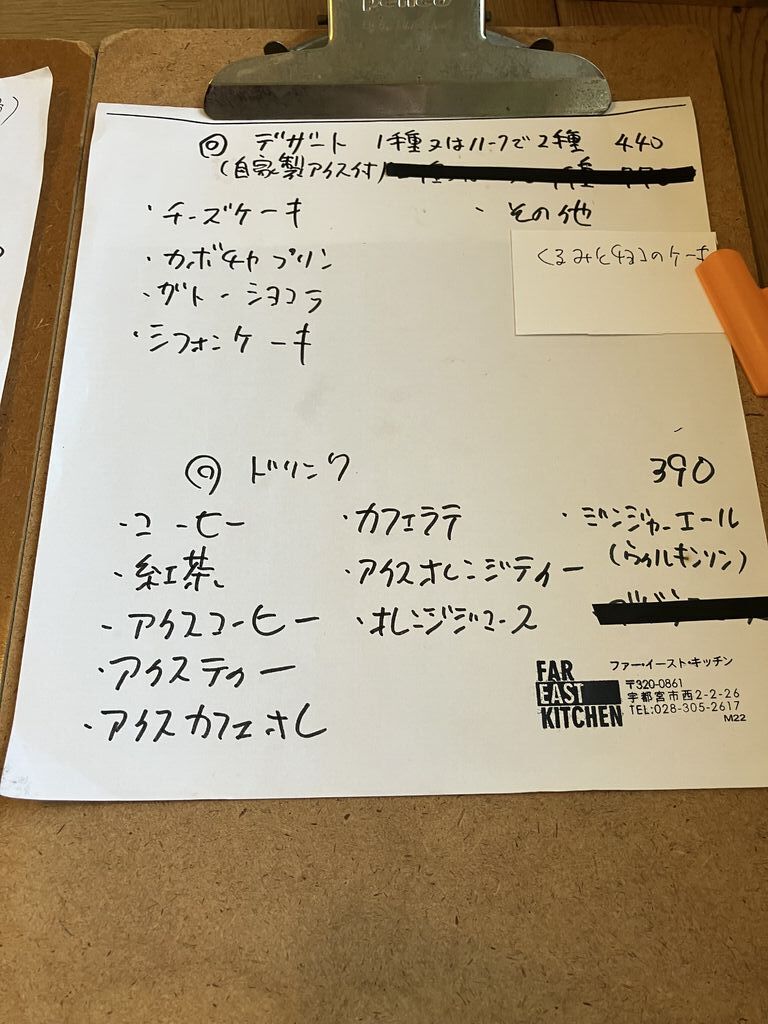 penco
◎ デザート 1種又はハーフで2種 440
(自家製アイス付)
・チーズケーキ
・その他
・カボチャプリン
くるみとチョコのケーキ
・ガトーショコラ
・シフォンケーキ
◎ ドリンク 390
・コーヒー ・カフェラテ ・ジンジャーエール
・紅茶 ・アイスオレンジティー (ウィルキンソン)
・アイスコーヒー ・オレンジジュース
・アイスティー
・アイスカフェオレ
FAR EAST KITCHEN
ファー・イースト・キッチン
〒320-0861
宇都宮市西2-2-26
TEL:028-305-2617
M22